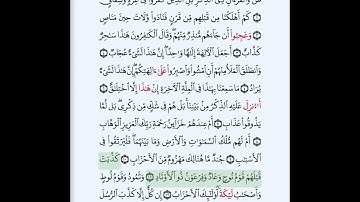 صٓ وَٱلۡقُرۡءَانِ ذِي ٱلذِّكۡرِ ۝١ بَلِ ٱلَّذِينَ كَفَرُواْ فِي عِزَّةٖ وَشِقَاقٖ ۝٢
كَمۡ أَهۡلَكۡنَا مِن قَبۡلِهِم مِّن قَرۡنٖ فَنَادَواْ وَّلَاتَ حِينَ مَنَاصٖ
۝٣ وَعَجِبُوٓاْ أَن جَآءَهُم مُّنذِرٞ مِّنۡهُمۡۖ وَقَالَ ٱلۡكَٰفِرُونَ هَٰذَا سَٰحِرٞ
كَذَّابٌ ۝٤ أَجَعَلَ ٱلۡأٓلِهَةَ إِلَٰهٗا وَٰحِدًاۖ إِنَّ هَٰذَا لَشَيۡءٌ عُجَابٞ ۝٥
وَٱنطَلَقَ ٱلۡمَلَأُ مِنۡهُمۡ أَنِ ٱمۡشُواْ وَٱصۡبِرُواْ عَلَىٰٓ ءَالِهَتِكُمۡۖ إِنَّ هَٰذَا لَشَيۡءٞ
يُرَادُ ۝٦ مَا سَمِعۡنَا بِهَٰذَا فِي ٱلۡمِلَّةِ ٱلۡأٓخِرَةِ إِنۡ هَٰذَآ إِلَّا ٱخۡتِلَٰقٌ ۝٧
أَءُنزِلَ عَلَيۡهِ ٱلذِّكۡرُ مِنۢ بَيۡنِنَاۚ بَلۡ هُمۡ فِي شَكّٖ مِّن ذِكۡرِيۚ بَل لَّمَّا
يَذُوقُواْ عَذَابِ ۝٨ أَمۡ عِندَهُمۡ خَزَآئِنُ رَحۡمَةِ رَبِّكَ ٱلۡعَزِيزِ ٱلۡوَهَّابِ
۝٩ أَمۡ لَهُم مُّلۡكُ ٱلسَّمَٰوَٰتِ وَٱلۡأَرۡضِ وَمَا بَيۡنَهُمَاۖ فَلۡيَرۡتَقُواْ فِي
ٱلۡأَسۡبَٰبِ ۝١٠ جُندٞ مَّا هُنَالِكَ مَهۡزُومٞ مِّنَ ٱلۡأَحۡزَابِ ۝١١ كَذَّبَتۡ
قَبۡلَهُمۡ قَوۡمُ نُوحٖ وَعَادٞ وَفِرۡعَوۡنُ ذُو ٱلۡأَوۡتَادِ ۝١٢ وَثَمُودُ وَقَوۡمُ لُوطٖ
وَأَصۡحَٰبُ لۡـَٔيۡكَةِۚ أُوْلَٰٓئِكَ ٱلۡأَحۡزَابُ ۝١٣ إِن كُلٌّ إِلَّا كَذَّبَ ٱلرُّسُلَ